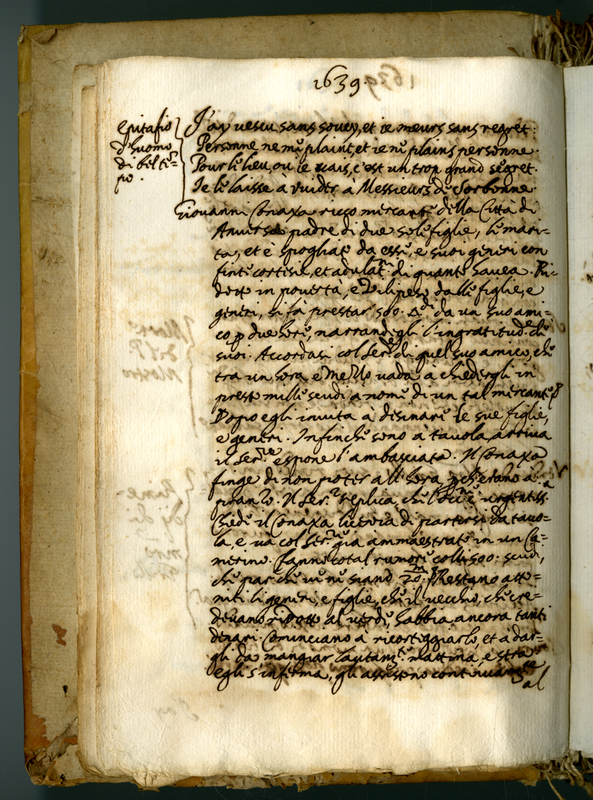 1639.
epitafio
d'huomo
di bel tem=
po.
J'ay vescu sans soucy, et ie meurs sans regret:
Personne ne me plaint, et ie ne plains personne.
Pour le lieu, ou ie vais, c'est un trop grand segret.
Je le laisse a vuider à Messieurs de Sorbonne
Giovanni Conaxa ricco mercante della Città di
Anversa padre di due sole figlie, le mari=
ta, et è spogliato da esse, e suoi generi con
finte cortesie, et adulat.ni di quanto havea. Ri=
dotto in povertà, e vilipeso dalle figlie, e
generi, si fà prestar 500. da un suo ami=
co p due hore, narrandogli l'ingratitud.e de
suoi. Accordasi col Ser.e di quel suo amico, che
tra un hora e mezzo vada a chiedergli in
presto mille scudi a nome di un tal mercante
Dopo egli invita à disinare le sue figlie,
e generi. Infinche sono à tavola, arriva
il Ser.re espone l'ambasciata. Il Conaxa
finge di non poter all'hora, pche erano a
pranzo. Il Ser.re replica, che è urgentiss.
Chiede il Conaxa licenza di partirsi da tavo=
la, e và col Ser.re già ammaestrato in un Ca=
merino. Fanno tal rumore colli 500: scudi,
che par che ve ne siano 20.m Restano atto=
niti li generi, e figlie, che il vecchio, che cre=
devano ridotto al verde, habbia ancora tanti
denari. Cominciano à ricorteggiarlo, et à dar=
gli da mangiar lautam.te mattina, e sera
egli s'inferma, gli assistono continuam.te
al